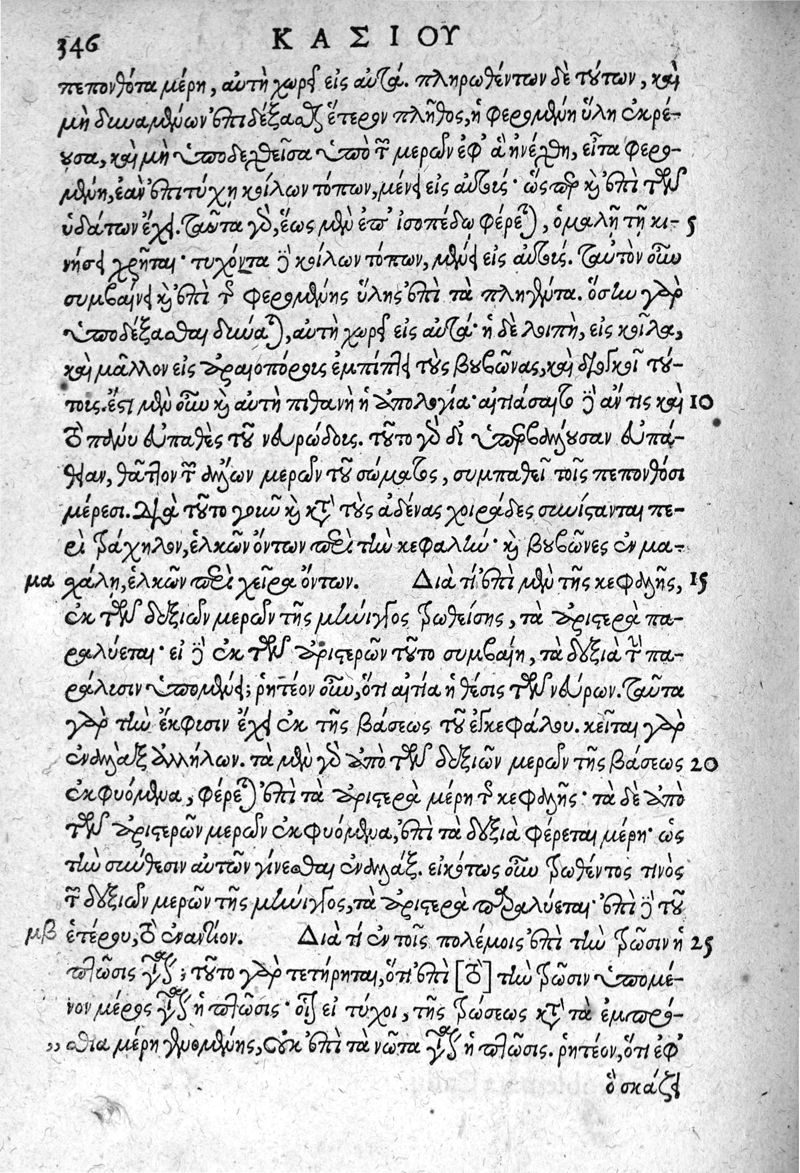 346 ΚΑΣΙΟΥ
πεπονθότα μέρη, αὐτὴ χωρεῖ εἰς αὐτά. πληρωθέντων δὲ τούτων, καὶ
μὴ δυναμένων ἐπιδέξασθαι ἕτερον πλῆθος, ἡ φερομένη ὕλη ἐκρέ-
ουσα, καὶ μὴ ὑποδεχθεῖσα ὑπὸ τῶν μερῶν ἐφ' ἃ ἠνέχθη, εἶτα φερο-
μένη, ἐὰν ἐπιτύχη κοίλων τόπων, μένει εἰς αὐτούς· ὥσπερ καὶ ἐπὶ τῶν
ὑδάτων ἔχει. ταῦτα γὰρ, ἕως μὲν ἐπ' ἰσοπέδω φέρεται, ὁμαλῆ τῆ κι- 5
νήσει χρῆται· τυχόντα δὲ κοίλων τόπων, μένει εἰς αὐτούς. ταὐτὸν οὖν
συμβαίνει καὶ ἐπὶ τῆς φερομένης ὕλης ἐπὶ τὰ πληγέντα. ὅσην γὰρ
ὑποδέξασθαι δύναται, αὐτὴ χωρεῖ εἰς αὐτά· ἡ δὲ λοιπὴ, εἰς κοῖλα,
καὶ μᾶλλον εἰς ἀραιοπόρους ἐμπίπτει τοὺς βουβῶνας, καὶ διογκοῖ τού-
τοις. ἔστι μὲν οὖν καὶ αὐτὴ πιθανὴ ἡ ἀπολογία· αἰτιάσαιτο δὲ ἄν τις καὶ 10
τὸ πάνυ εὐπαθὲς τοῦ νευρώδους. τοῦτο γὰρ δι' ὑπερβάλλουσαν εὐπά-
θειαν, θᾶττον τῶν ἄλλων μερῶν τοῦ σώματος, συμπαθεῖ τοῖς πεπονθόσι
μέρεσι. Διὰ τοῦτο γοῦν καὶ κατὰ τοὺς ἀδένας χοιράδες συνίστανται πε-
ρὶ τράχηλον, ἑλκῶν ὄντων περὶ τὴν κεφαλήν· καὶ βουβῶνες ἐν μα-
μα χάλη, ἑλκῶν περὶ χεῖρα ὄντων. Διὰ τί ἐπὶ μὲν τῆς κεφαλῆς, 15
ἐκ τῶν δεξιῶν μερῶν τῆς μήνιγγος τρωθείσης, τὰ ἀριστερὰ πα-
ραλύεται· εἰ δὲ ἐκ τῶν ἀριστερῶν τοῦτο συμβαίη, τὰ δεξιὰ τὴν πα-
ράλυσιν ὑπομένει; ῥητέον οὖν, ὅτι αἰτία ἡ θέσις τῶν νεύρων. ταῦτα
γὰρ τὴν ἔκφυσιν ἔχει ἐκ τῆς βάσεως τοῦ ἐγκεφάλου. κεῖται γὰρ
ἐναλλὰξ ἀλλήλων. τὰ μὲν γὰρ ἀπὸ τῶν δεξιῶν μερῶν τῆς βάσεως 20
ἐκφυόμενα, φέρεται ἐπὶ τὰ ἀριστερὰ μέρη τῆς κεφαλῆς· τὰ δὲ ἀπὸ
τῶν ἀριστερῶν μερῶν ἐκφυόμενα, ἐπὶ τὰ δεξιὰ φέρεται μέρη· ὡς
τὴν σύνθεσιν αὐτῶν γίνεσθαι ἐναλλάξ. εἰκότως οὖν τρωθέντος τινὸς
τῶν δεξιῶν μερῶν τῆς μήνιγγος, τὰ ἀριστερὰ παραλύεται· ἐπὶ δὲ τοῦ
μβ ἑτέρου, τὸ ἐναντίον. Διὰ τί ἐν τοῖς πολέμοις ἐπὶ τὴν τρῶσιν ἡ 25
πτῶσις γίνεται; τοῦτο γὰρ τετήρηται, ὅτι ἐπὶ [τὸ] τὴν τρῶσιν ὑπομέ-
νον μέρος γίνεται ἡ πτῶσις· οἷον εἰ τύχοι, τῆς τρώσεως κατὰ τὰ ἐμπρό-
„ σθια μέρη γενομένης, οὐκ ἐπὶ τὰ νῶτα γίνεται ἡ πτῶσις. ῥητέον, ὅτι ἐφ'
ὃ σκάζει